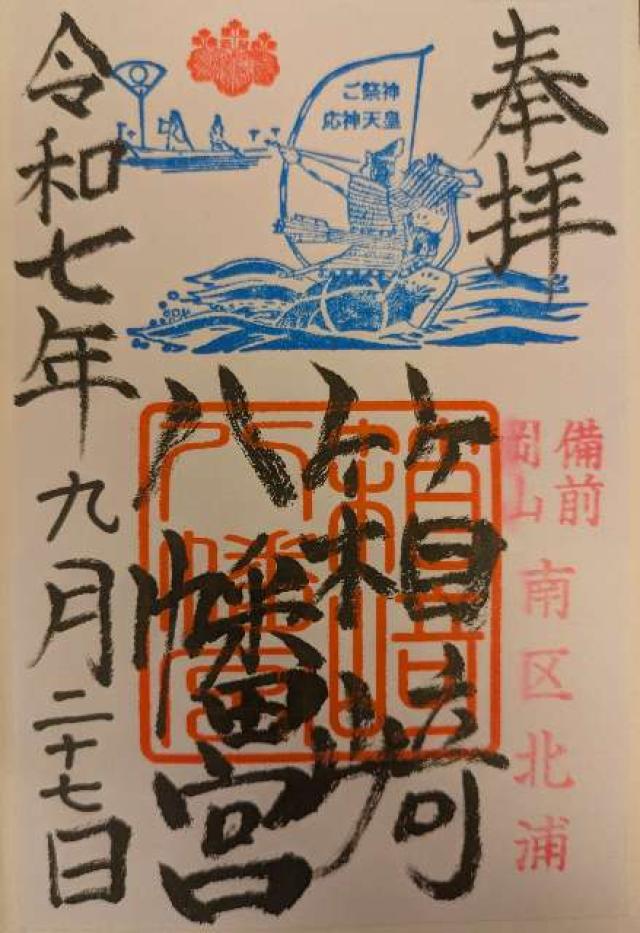 奉拝
ご祭神
応神天皇
備前
岡山
南区北浦
箱崎
八幡宮
令和七年九月二十七日